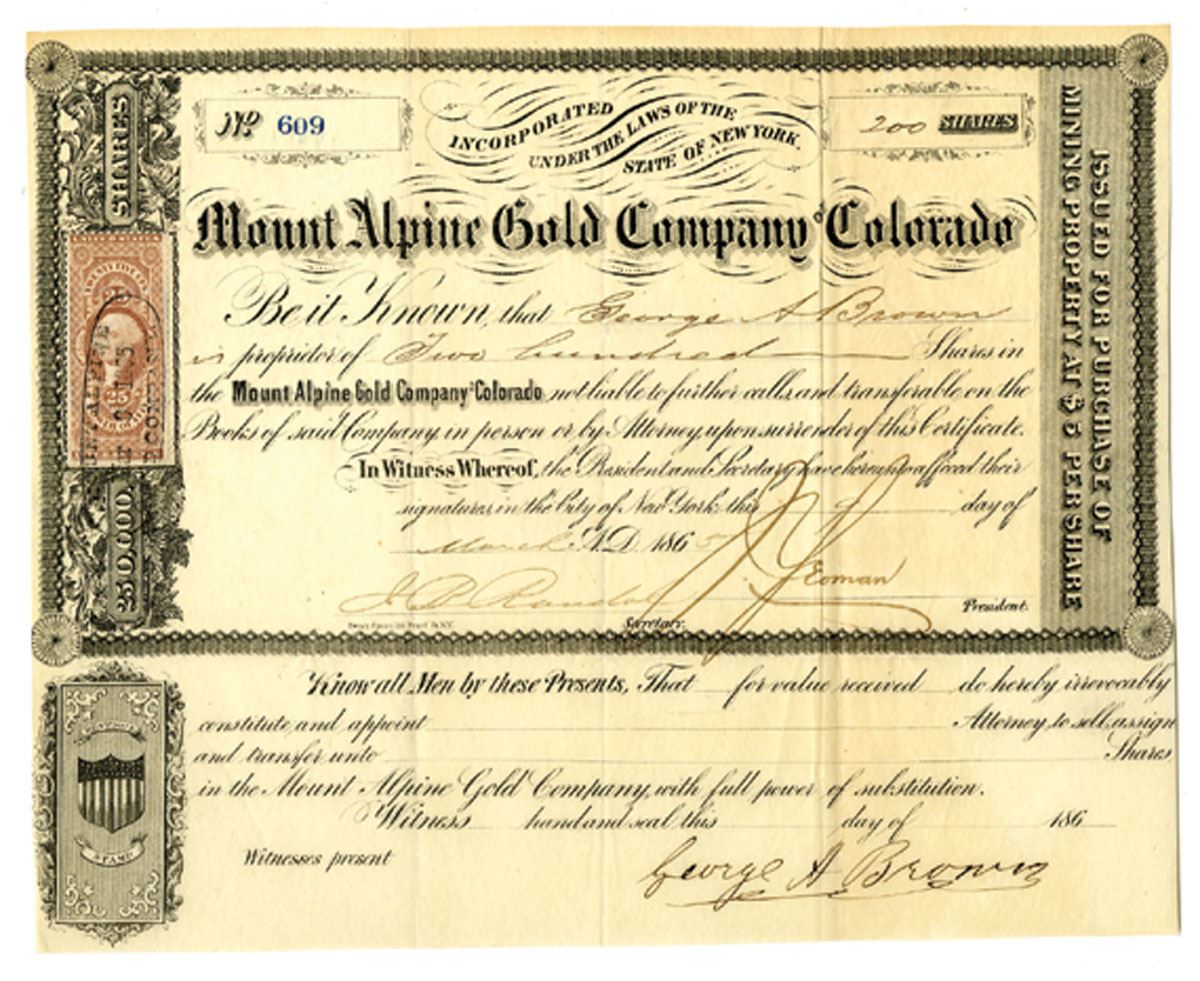 No 609
INCORPORATED
UNDER THE LAWS OF THE
STATE OF NEW YORK.
200 SHARES
SHARES
25,0,000.
Mount Alpine Gold Company of Colorado
Be it Known, that George A Brown
is proprietor of Two hundred Shares in
the Mount Alpine Gold Company of Colorado not liable to further calls, and transferable on the
Books of said Company in person or by Attorney, upon surrender of this Certificate.
In Witness Whereof, the President and Secretary have hereunto affixed their
signatures in the City of New York this day of
March A.D. 1865
J. P. Secretary. Yeoman President.
ISSUED FOR PURCHASE OF
MINING PROPERTY AT $5 PER SHARE
Know all Men by these Presents, That for value received do hereby irrevocably
constitute and appoint Attorney, to sell, assign
and transfer unto Shares
in the Mount Alpine Gold Company, with full power of substitution.
Witness hand and seal this day of 186
Witnesses present
George A Brown
STAMP